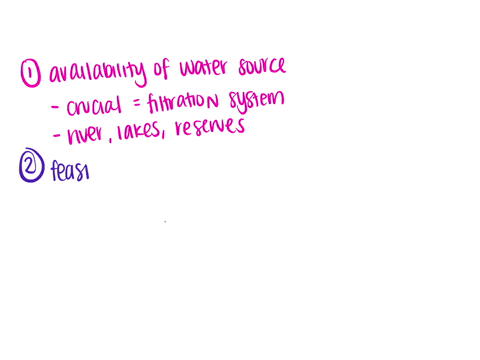 ① availability of water source
- crucial = filtration system
- river, lakes, reserves
② feasi